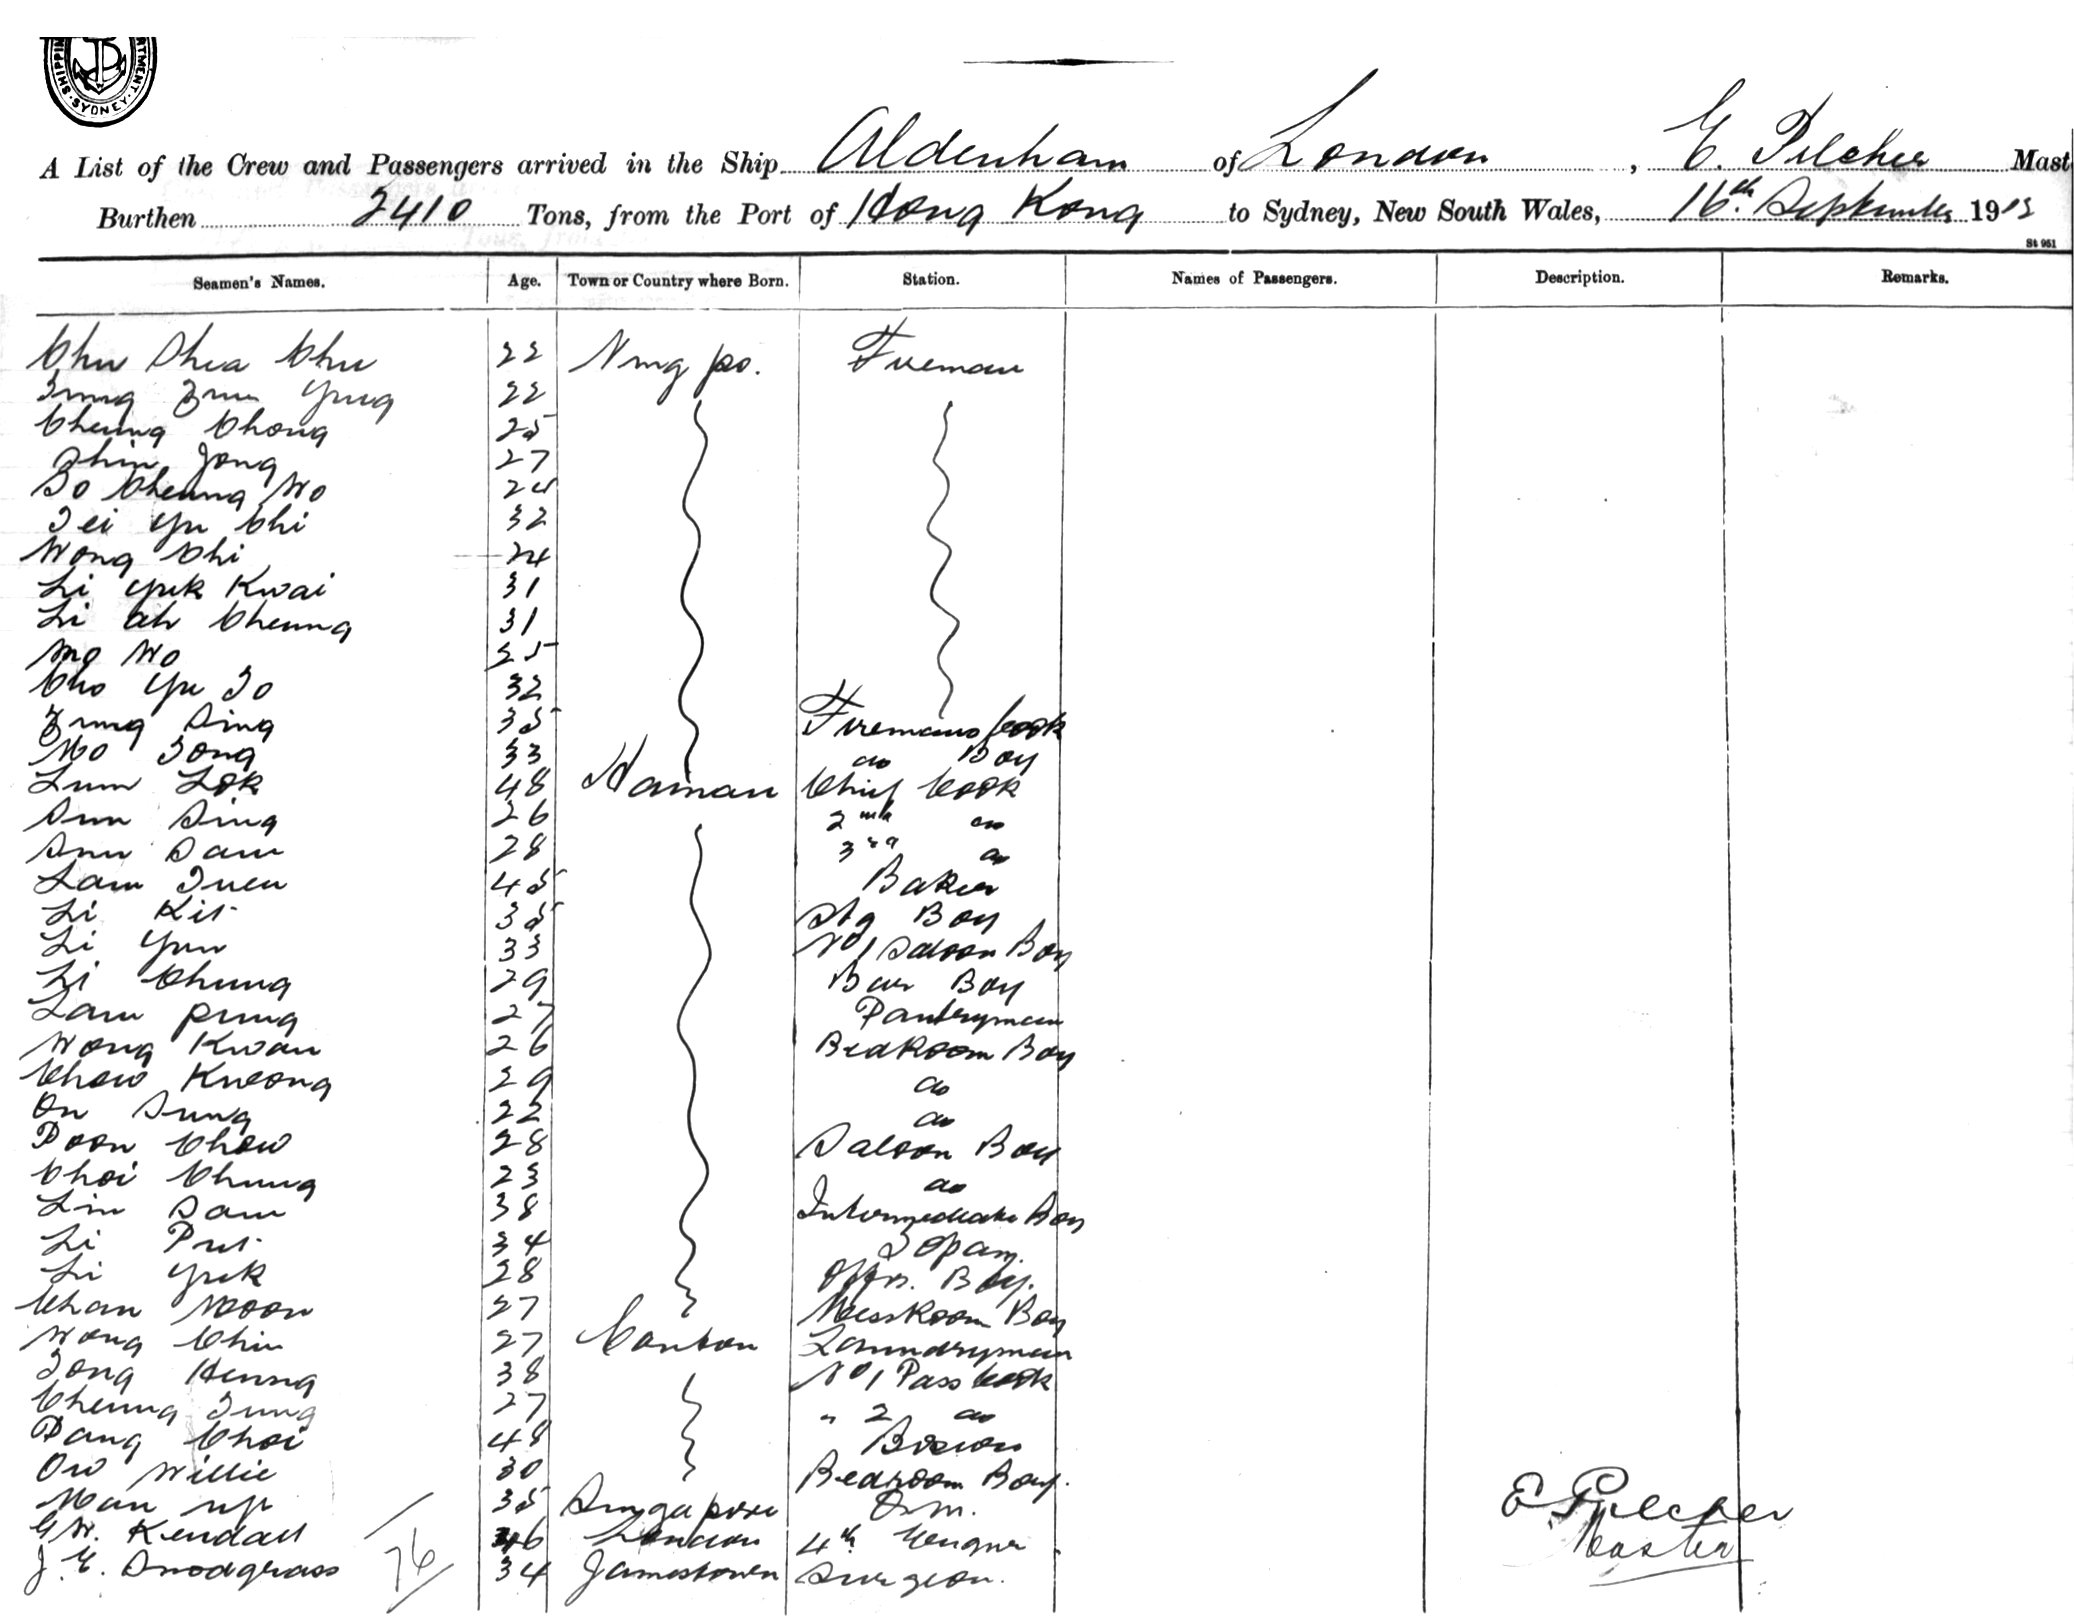 SHIPPIN RTMENT. SYDNEY.
A List of the Crew and Passengers arrived in the Ship Aldenham of London, E. Pilcher Mast
Burthen 2410 Tons, from the Port of Hong Kong to Sydney, New South Wales, 16th September 19
St 951
Seamen's Names. Age. Town or Country where Born. Station. Names of Passengers. Description. Remarks.
Chu Shea Chu 22 Ning po. Fireman
22
Cheung Chong 25
Shin Jong 27
So Cheung Wo 24
Tei Yu Chi 32
Wong Chi 24
Li Yuk Kwai 31
Li Ah Cheung 31
Mo Wo 25
Cho Yu So 32
Zung Sing 35 Firemans Cook
Mo Song 33 do Boy
Lum Lok 48 Hainan Chief Cook
Sun Sing 26 2nd do
Sun Sam 28 3rd do
Lam Tuen 45 Baker
Li Kit 35 Stg Boy
Li Yun 33 No 1 Saloon Boy
Li Chung 29 Bar Boy
Lam Pung 27 Pantryman
Wong Kwan 26 BedRoom Boy
Chow Kweong 29 do
On Sung 22 do
Poon Chow 28 Saloon Boy
Choi Chung 23 do
Lim Sam 38 Intermediate Boy
Li Put 34 Topam.
Li Yuk 28 Offrs. Boy.
Chan Moon 27 MessRoom Boy
Wong Chin 27 Canton Laundryman
Tong Heung 38 No 1 Pass Cook
Cheung Tung 27 " 2 do
Pang Choi 48
Ow Willie 30 Bedroom Boy.
Man Yip 35 Singapore
G.W. Kendall 46 London 4th Engnr.
J. E. Snodgrass 34 Jamestown Surgeon.
76
E Pilcher
Master